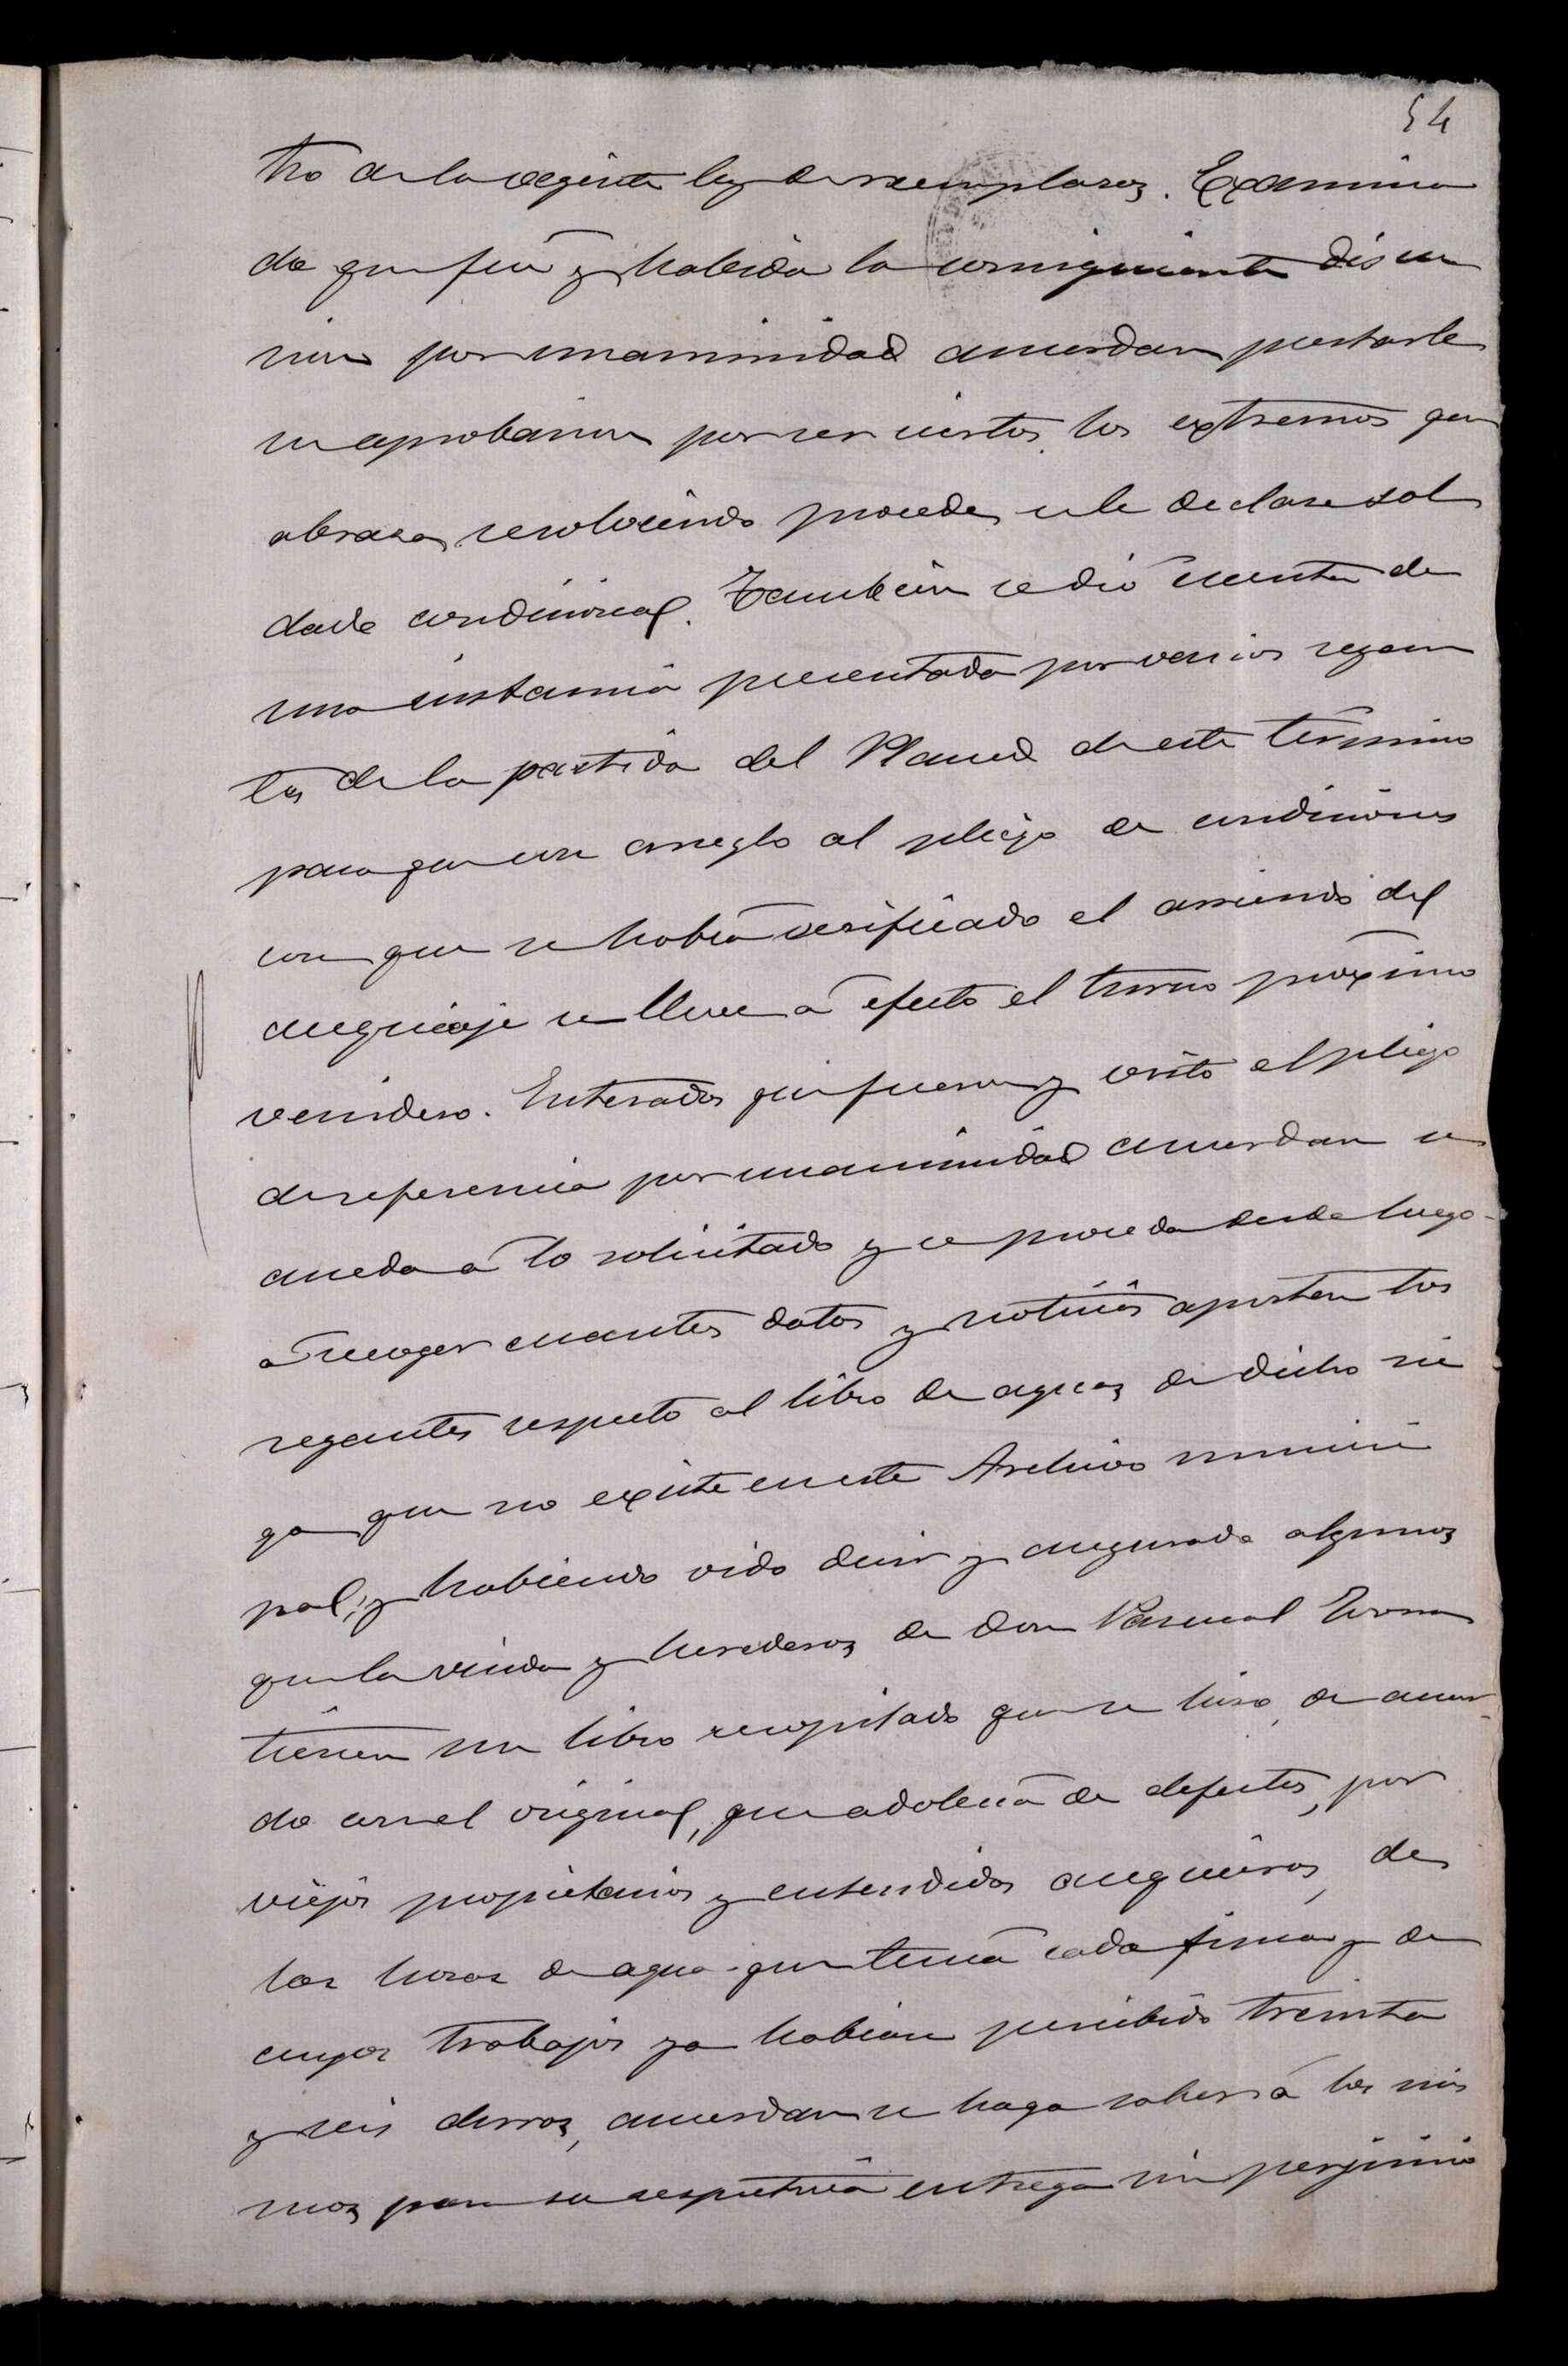 54
tro de la vigente ley de reemplazos. Examina
da que fué y habida la consiguiente discu
sion por unanimidad acuerdan prestarle
su aprobacion por ser ciertos los extremos que
abraza, resolviendo procede se le declare sol
dado condicional. Tambien se dió cuenta de
una instancia presentada por varios regan
tes de la partida del Planed de este término
para que con arreglo al pliego de condiciones
con que se habia verificado el arriendo del
acequiaje se lleve á efecto el turno próximo
venidero. Enterados que fueron y visto el pliego
de referencia por unanimidad acuerdan se
acceda á lo solicitado y se proceda desde luego
á recoger cuantos datos y noticias aporten los
regantes respecto al libro de aguas de dicho rie
go que no existe en este Archivo munici
pal, y habiendo oido decir y asegurado algunos
que la viuda y herederos de Don Pascual
tienen un libro recopilado que se hizo, de acuer
do con el original, que adolecia de defectos, por
viejos propietarios y entendidos acequieros, de
las horas de agua que tenia cada finca y de
cuyos trabajos ya habian percibido treinta
y seis duros, acuerdan se haga saber á los mis
mos para su respectiva entrega sin perjuicio